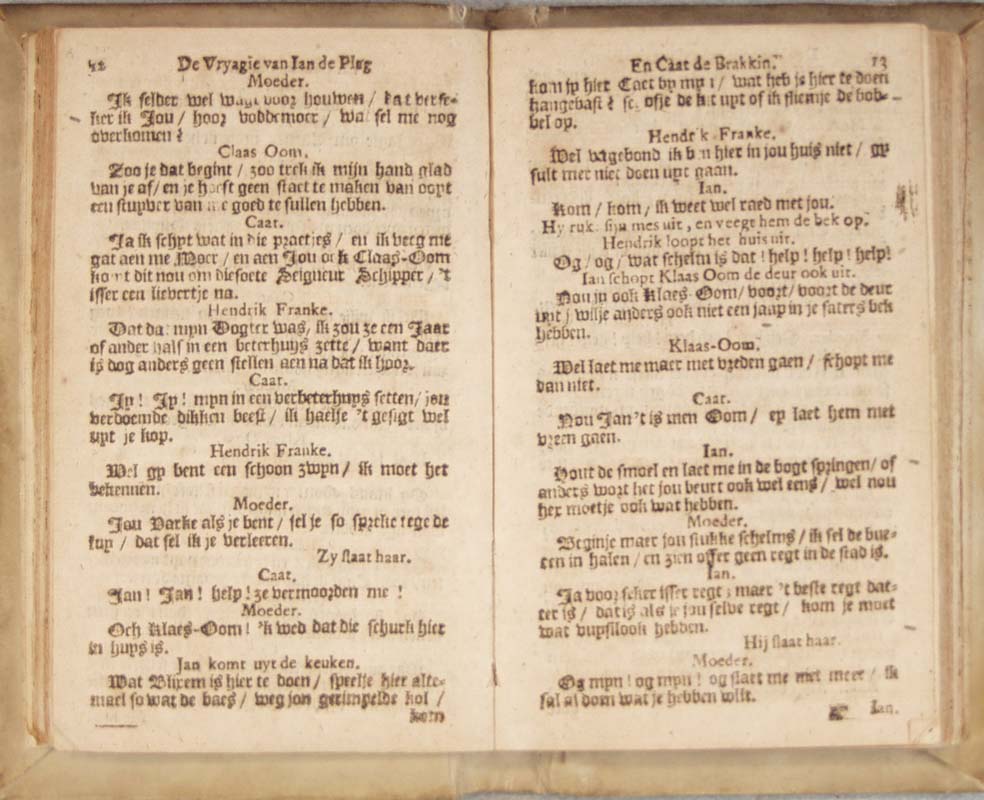 De Vryagie van Ian de Plęg
Moeder.
Ik selder wel voor houwen / dat verse-
ker ik Jou / hoor voddemoer / wat sel me nog
overkomen?
Claas Oom.
Zoo je dat begint / zoo trek ik mijn hand glad
van je af / en je hoeft geen staet te maken van oopt
een stuyver van me goed te sullen hebben.
Caat.
Ja ik schyt wat in die praetjes / en ik veeg me
gat aen me Moer / en aen Jou ook Claas-Oom
komt dit nou om diesoete Seigneur Schipper / 't
isser een liebertje na.
Hendrik Franke.
Dat dat myn Dogter was, ik zou ze een Jaar
of ander half in een beterhuys zette / want daer
is dog anders geen stellen aen na dat ik hoor.
Caat.
Jy! Jy! myn in een verbeterhuys setten / jou
verdoemde dikken beest / ik haelje 't gesigt wel
uyt je kop.
Hendrik Franke.
Wel gy bent een schoon zwyn / ik moet het
bekennen.
Moeder.
Jou Varke als je bent / sel je so spreke tege de
luy / dat sel ik je verleeren.
Zy slaat haar.
Caat.
Jan! Jan! help! ze vermoorden me!
Moeder.
Och Klaes-Oom! 'k wed dat die schurk hier
in huys is.
Jan komt uyt de keuken.
Wat Blixem is hier te doen / speelje hier alte-
mael so wat de baes / weg jou gerimpelde kol /
kom
En Caat de Brakkin. 13
kom jy hier Caet by myn / wat heb je hier te doen
hangebast? of je de uyt of ik sliemje de bob-
bel op.
Hendrik Franke.
Wel vagebond ik ben hier in jou huis niet / gy
sult met niet doen uyt gaan.
Ian.
Kom / kom / ik weet wel raed met jou.
Hy rukt sijn mes uit, en veegt hem de bek op.
Hendrik loopt het huis uit.
Og / og / wat schelm is dat! help! help! help!
Ian schopt Klaas Oom de deur ook uit.
Nou jy ook Klaes-Oom / voort / voort de deur
uyt / wilje anders ook niet een jaap in je saters bek
hebben.
Klaas-Oom.
Wel laet me maer met vreden gaen / schopt me
dan niet.
Caat.
Nou Jan 't is men Oom / ey laet hem met
vreen gaen.
Ian.
Hout de smoel en laet me in de bogt springen / of
anders wort het jou beurt ook wel eens / wel nou
hex moetje ook wat hebben.
Moeder.
Beginje maer jou stukke schelms / ik sel de bue-
ren in halen / en zien offer geen regt in de stad is.
Ian.
Ja voor seker isser regt; maer 't beste regt dat-
ter is / dat is als je jou selve regt / kom je moet
wat hebben.
Hij slaat haar.
Moeder.
Og myn! og myn! og slaet me niet meer / ik
sal al dom wat je hebben wilt.
Ian.